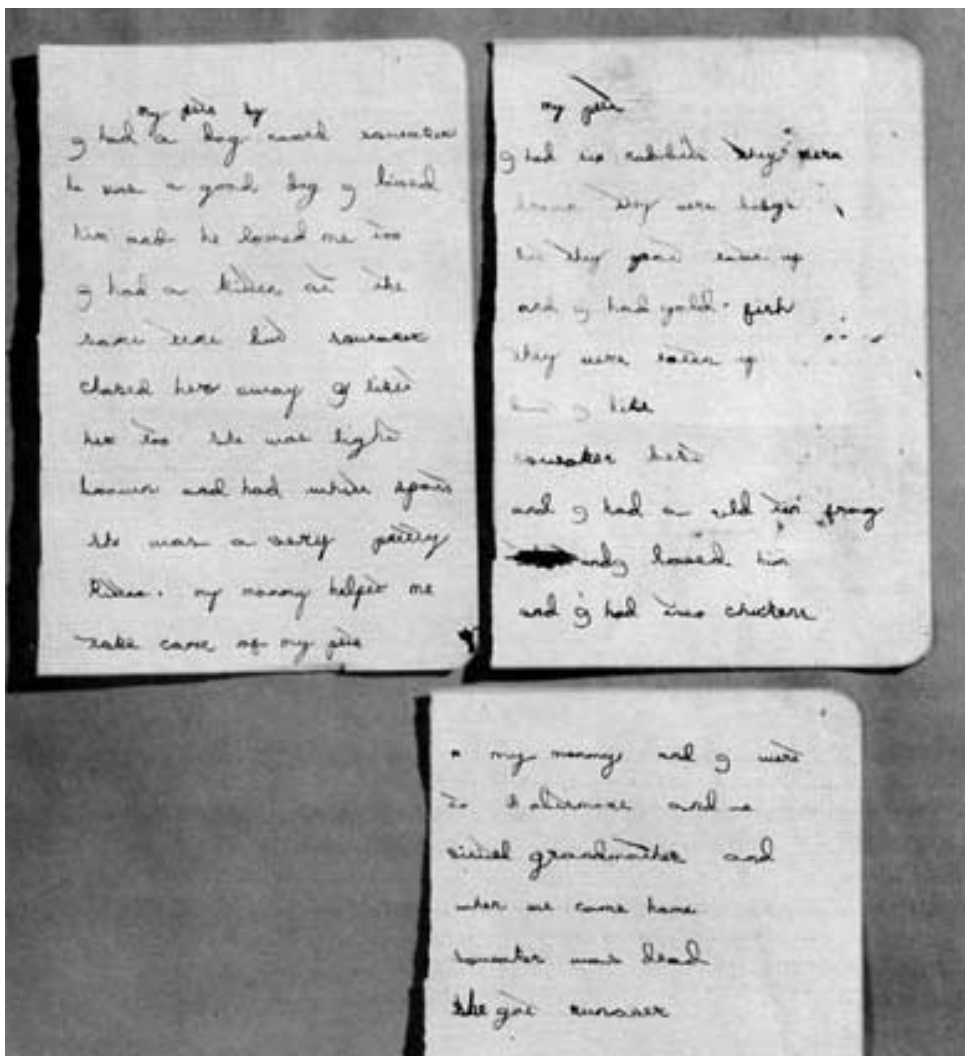 my pets by
I had a dog named squeaker
he was a good dog I loved
him and he loved me too
I had a kitten at the
same time but squeaker
chased her away I liked
her too she was light
brown and had white spots
she was a very pretty
kitten. my mommy helped me
take care of my pets
my pets
I had six rabbits they were
brown they were babys
but they got eaten up
and I had gold fish
they were eaten up
squeaker
and I had a old frog
and I loved him
and I had two chickens
my mommy and I went
to Baltimore and we
visited grandmother and
when we came home
squeaker was dead
she got runover